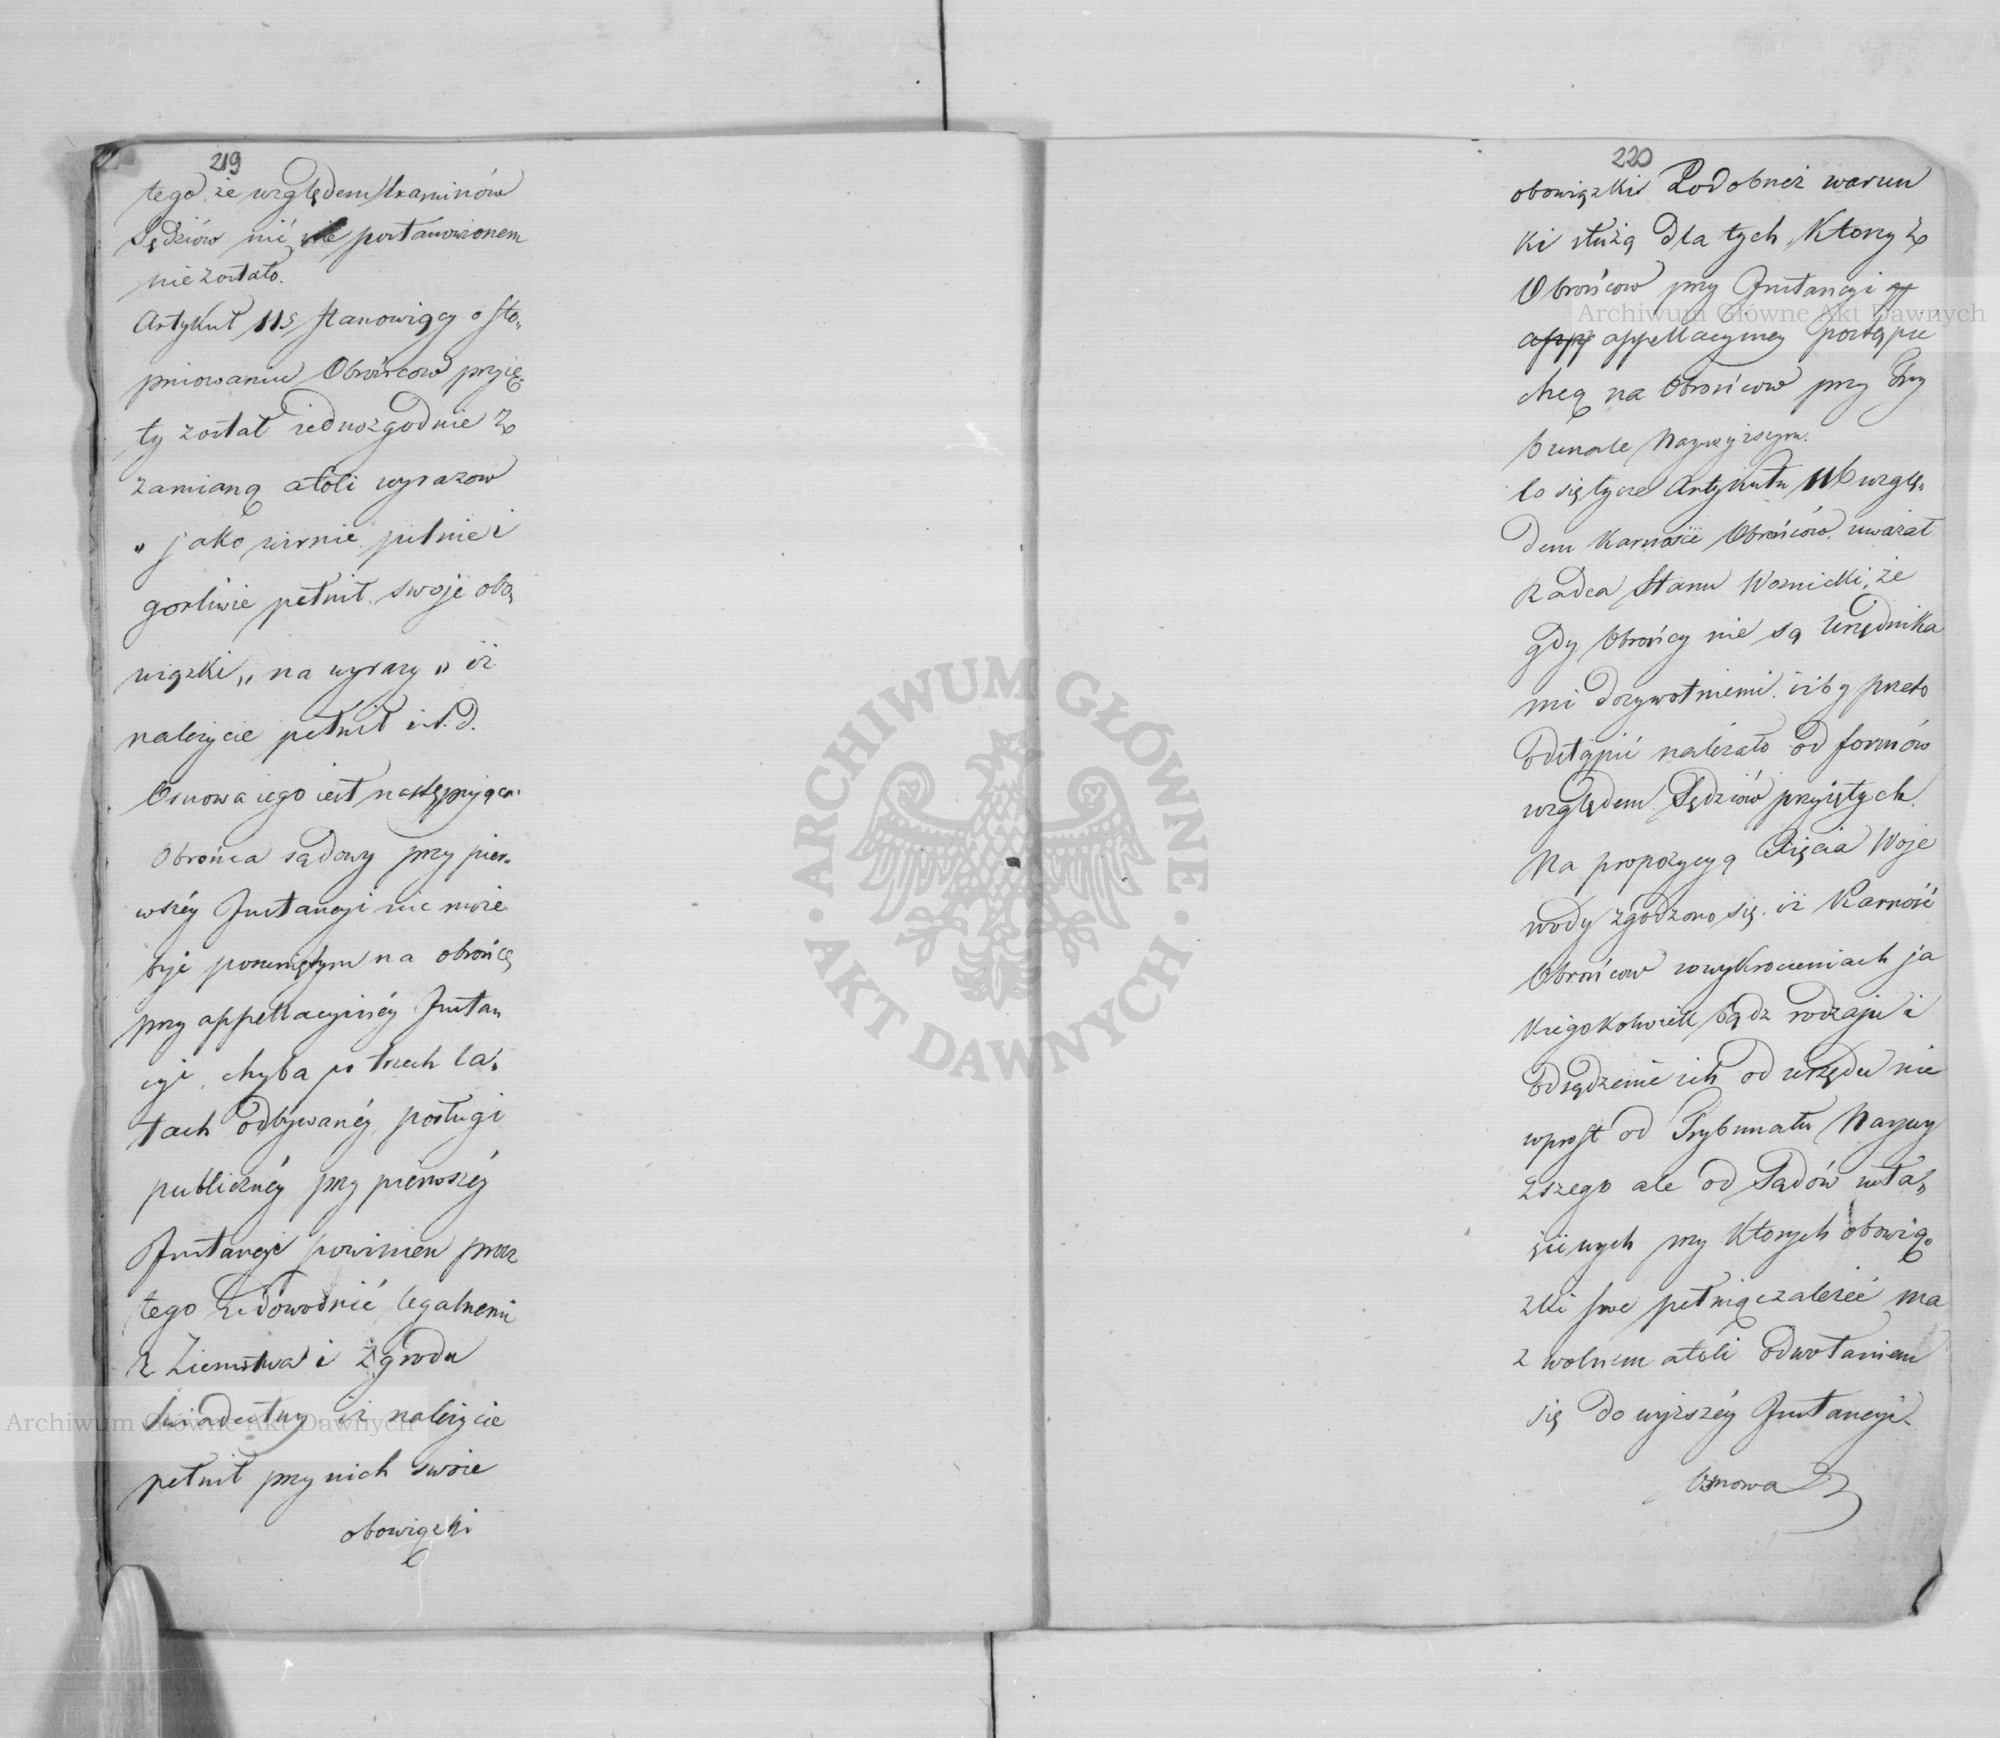 219
tego że względem Examinów
Sędziów nic postanowionem
nie zostało.
Artykuł 115 stanowiący o sto„
pniowaniu Obrońców przyię„
ty został iednozgodnie z
zamianą atoli wyrazow
„ jako wiernie pilnie i
gorliwie pełnił swoje obo„
wiązki „ na wyrazy „ iż
należycie pełnił i t. d.
Osnowa iego iest następująca.
Obrońca sądowy przy pier„
wszéy Instancyi nie może
być posuniętym na obrońcę
przy appellacyinéy Instan
cyi, chyba po trzech la„
tach odbywanéy posługi
publicznéy przy pierwszéy
Instancyi powinien przez
tego udowodnić legalnemi
z Ziemstwa i Zgrodu
świadectwy iż należycie
pełnił przy nich swoie
obowiązki
220
obowiązki Podobneż warun
ki służą dla tych, Ktorzy z
Obrońcow przy Instancyi
appellacyiney postąpić
chcą na Obrońcow przy Try
bunale Naywyższym.
Co się tycze Artykułu 116 wzglę„
dem Karności Obrońców, uważał
Radca Stanu Woznicki, że
gdy Obrońcy nie są Urzędnika
mi dożywotniemi, iżby przeto
odstąpić należało od formów
względem Sędziów przyiętych.
Na propozycyą Xięcia Woje
wody zgodzono się, iż Karność
Obrońcow w wykroczeniach ja
kiegokolwiek bądz rodzaju i
odsądzenie ich od urzędu nie
wprost od Trybunału Naywy
ższego ale od Sądów wła„
ściwych przy Ktorych obowią„
zki swe pełnią zależeć ma
z wolnem atoli odwołaniem
się do wyższéy Instancyi.
Osnowa
Archiwum Główne Akt Dawnych
Archiwum Główne Akt Dawnych
ARCHIWUM GŁÓWNE · AKT DAWNYCH ·